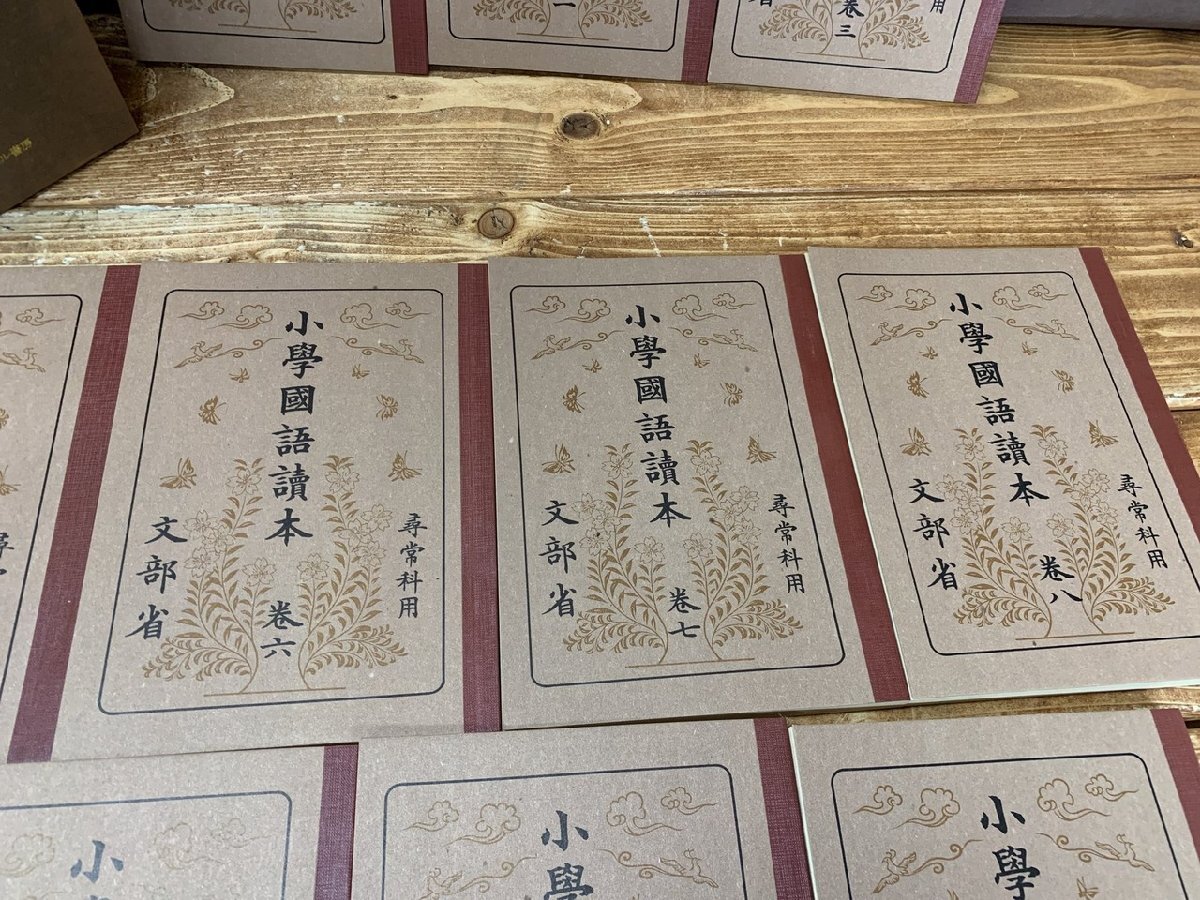 一
卷三
用
小學國語讀本
尋常科用
卷六
文部省
小學國語讀本
尋常科用
卷七
文部省
小學國語讀本
尋常科用
卷八
文部省
尋
小
小學
小學